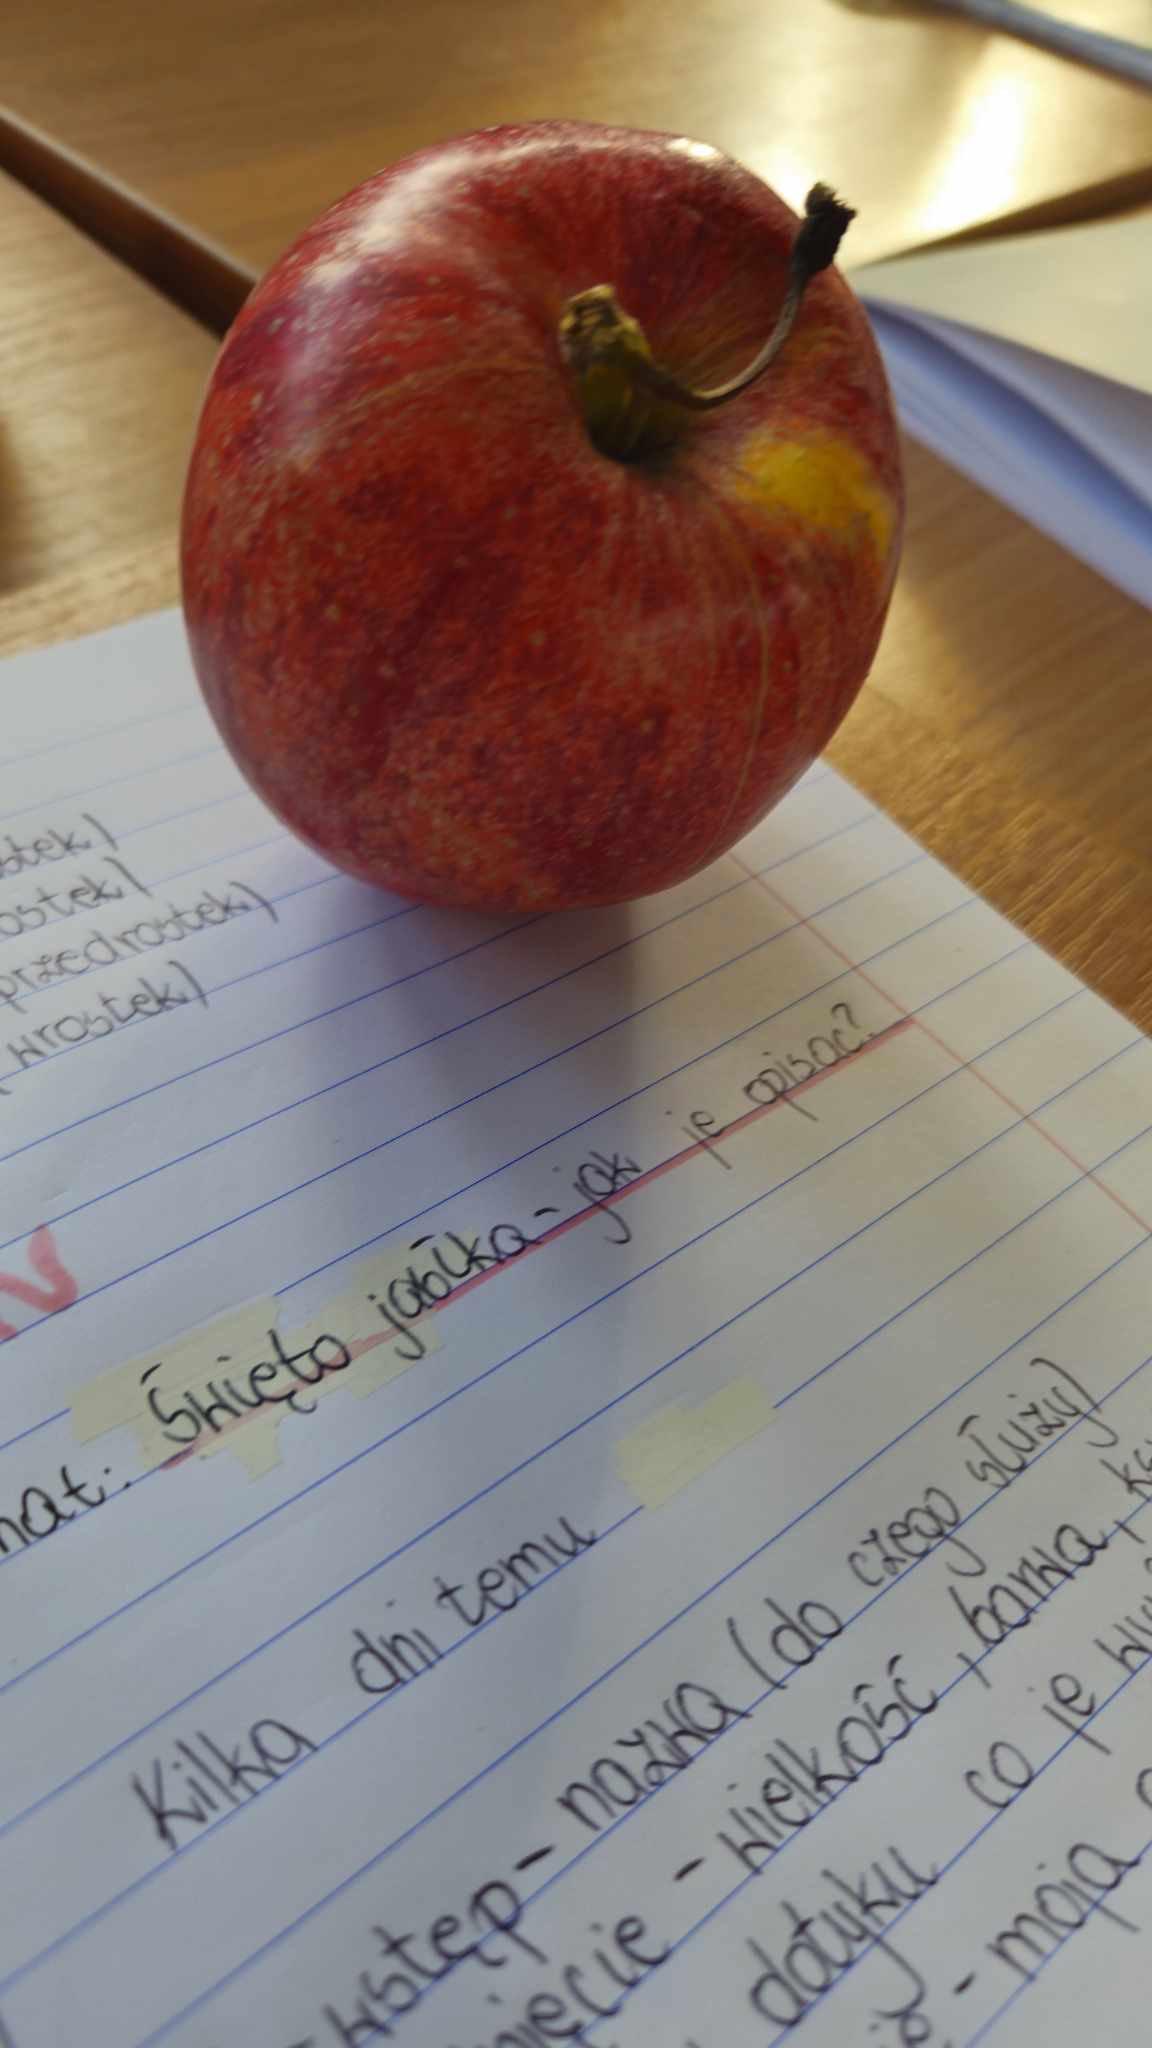 przedrostek)
wrostek)
Święto jabłka - jak je opisać?
Kilka dni temu
wstęp - nazwa (do czego służy)
- wielkość, barwa,
dotyku co je
- moja